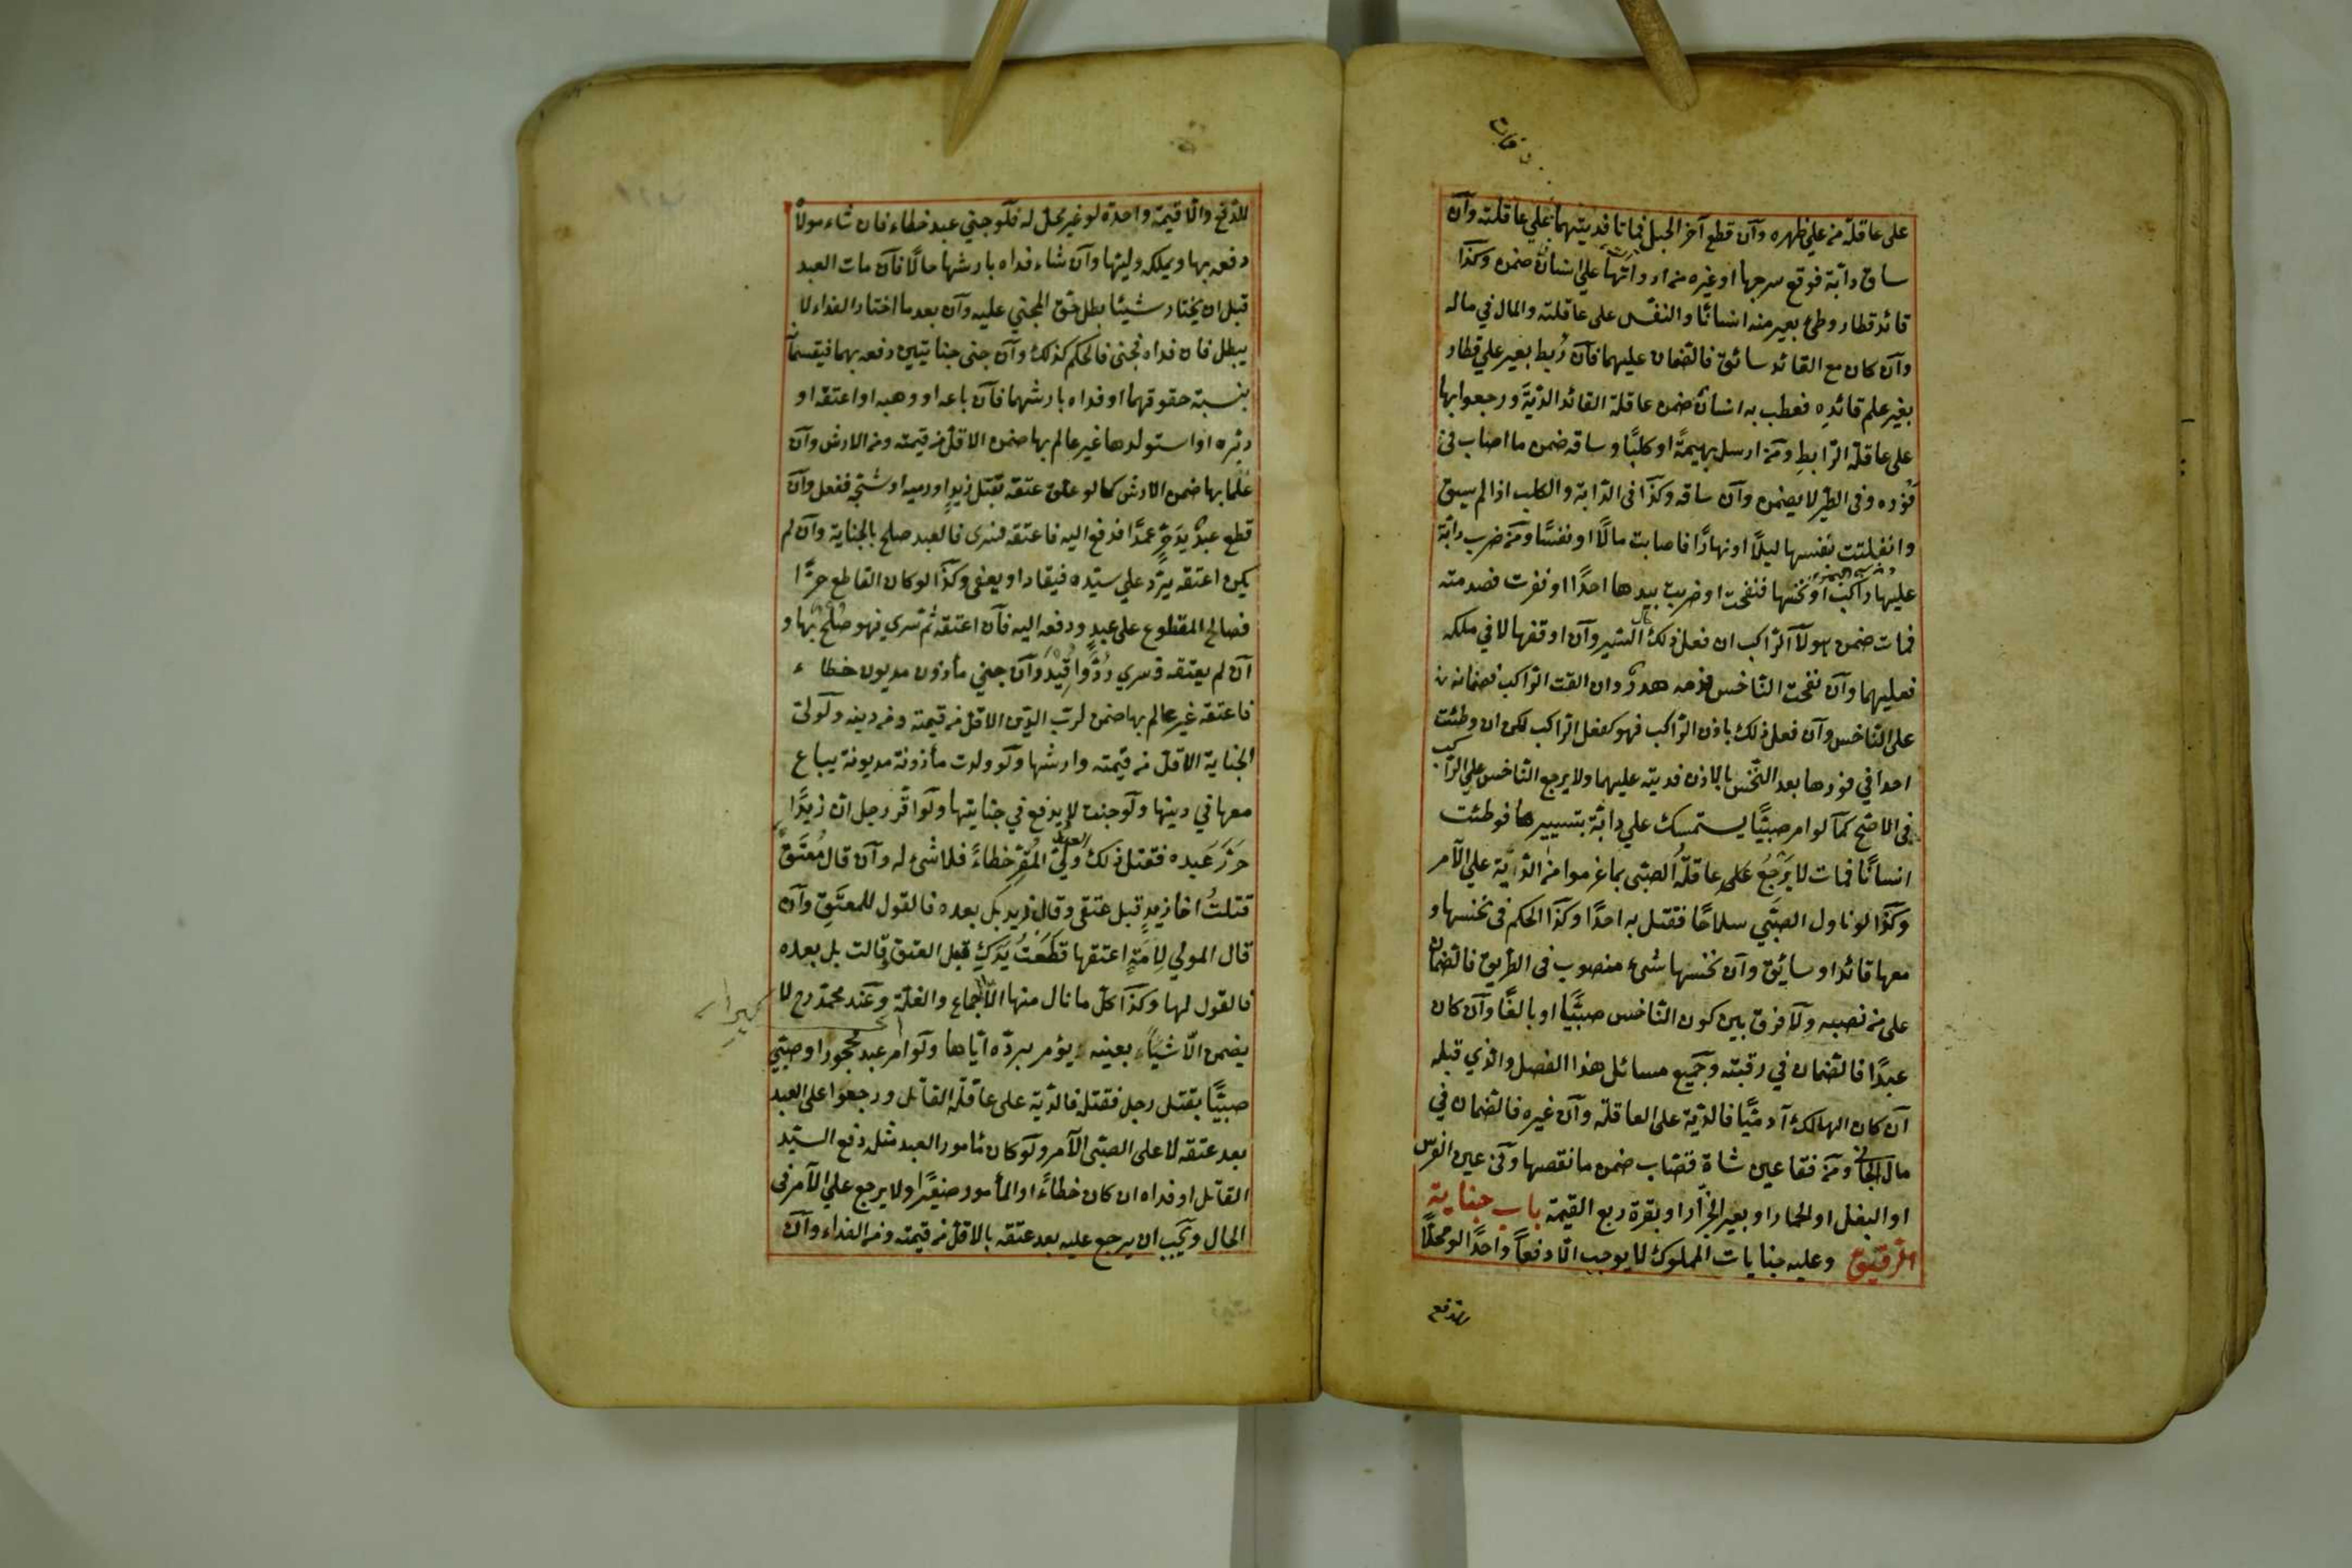 على عاقلة من على ظهره وآن قطع آخر الحبل فماتا فديتهما على عاقلته وآن
ساق دابّة فوقع سرجها او غيره من ادواتها على انسان ضمن وكذا
قائد قطار وطئ بعير منه انسانًا والنفس على عاقلته والمال في ماله
وآن كان مع القائد سائق فالضمان عليهما فآن رُبط بعير علي قطار
بغير علم قائدِه فعطب به انسان ضمن عاقلة القائد الديّة ورجعوا بها
على عاقلة الرّابطِ ومَن ارسل بهيمةً او كلبًا وساقه ضمن ما اصاب فى
فَوْرِه وفى الطّير لا يضمن وآن ساقه وكذا فى الدّابة والكلب اذا لم يسق
وانفلتت بنفسها ليلًا او نهارًا فاصابت مالًا او نفسًا ومَن ضرب دابّة
عليها راكب او نخسها فنفحت او ضربت بيدها احدًا او نفرت فصدمته
فمات ضمن هو لآ الرّاكب ان فعل ذلك حال السّير وآن اوقفها لا في ملكه
فعليهما وآن نفحت النّاخس فدمه هدرٌ وان القت الرّاكب فضمانه
على النّاخس وآن فعل ذلك باذن الرّاكب فهو كفعل الرّاكب لكن ان وطئت
احدا في فورها بعد النّخس بالاذن فديته عليهما ولا يرجع النّاخس على الرّاكب
فى الاصّح كمآ لو امر صبيًّا يستمسك علي دابّة بتسييرها فوطئت
انسانًا فمات لا يَرْجِعُ عَلى عاقلةُ الصبّى بما غرموا من الدّيّة علي الآمر
وكذّا لو ناول الصبّي سلاحًا فقتل به احدًا وكذّا الحكم فى نخسها و
معها قائد او سايئق وآن نخسها شىء منصوب فى الطّريق فالضمان
على من نصبه ولآ فرق بين كون النّاخس صبيًّا او بالغًا وآن كان
عبدًا فالضمان في رقبته وجَميع مسائل هذا الفصل والذي قبله
آن كان الهالك آدميًّا فالدّية على العاقلة وآن غيره فالضمان في
مال الجانى ومَن فقأ عين شاة قصّاب ضمن ما نقصها وفَى عين الفرس
او البغل او الحمار او بعير الجزّار او بقرة ربع القيمة باب جناية
الرّقيق وعليه جنايات المملوك لا يوجب الّا دفعًا واحدًا لو محلًّا
للدّفع
للدّفع والّا قيمة واحدة لو غير محلّ له فلَو جني عبد خطاء فان شاء مولاه
دفعه بها ويملكه وليّها وآن شاء فداه بارشها حالًّا فآن مات العبد
قبل ان يختار شيئًا بطل حقّ المجني عليه وآن بعد ما اختار الفداء لا
يبطل فان فداه فجنى فالحكم كذلك وآن جنى جنايتين دفعه بهما فيقسمانه
بنسبة حقوقهما او فداه بارشهما فآن باعه او وهبه او اعتقه او
دبّره او استولدها غير عالم بها ضمن الاقلّ من قيمته ومن الارش وآن
عَلم بها ضمن الارش كما لو علق عتقه بقتل زيدٍ او رميه او شجّه ففعل وآن
قطع عبدٌ يَدَ حرٍّ عمدًا فدفع اليه فاعتقه فسرى فالعبد صلح بالجناية وآن لم
يكن اعتقه يردّ علي سيّده فيقاد او يعفى وكذّا لو كان القاطع حرًّا
فصالح المقطوع على عبدٍ ودفعه اليه فآن اعتقه ثم سري فهو صُلْحٌ بها و
آن لم يعتقه فسري رُدَّ واُقِيْدَ وآن جني مأذون مديون خطاء
فاعتقه غير عالم بها ضمن لربّ الدّين الاقلّ من قيمته ومن دينه ولولىّ
الجناية الاقلّ من قيمته وارشها ولَو ولدت مأذونة مديونة يباع
معها في دينها ولَو جنت لا يدفع في جنايتها ولَو اقّر رجل انّ زيدًا
حَرّرَ عَبده فقتل ذلك العبد وليّ المُقِرّ خطاءً فلا شئ له وآن قال مُعتَقٌ
قتلتُ اخا زيدٍ قبل عتقى وقال زيد بل بعده فالقول للمعتَق وآن
قال المولي لِاَمَةٍ اعتقها قَطَعْتُ يَدَكِ قبل العتق وقالت بل بعده
فالقول لها وكذّا كلّ ما نال منها الّا الجماع والغلّة وعَند محمّد رح لا
يضمن الّا شيًأ بعينه يؤمر بردّه ايّاها ولَو امر عبد محجور او صبّي
صبيًّا بقتل رجل فقتله فالدّية على عاقلة القاتل ورجعوا على العبد
بعد عتقه لا على الصبّى الآمر ولَو كان مأمور العبد مثله دفع السيّد
القاتل او فداه ان كان خطاءً او المأمور صغيرًا ولا يرجع علي الآمر فى
الحال ويَجب ان يرجع عليه بعد عتقه بالاقلّ من قيمته ومن الفداء وآن